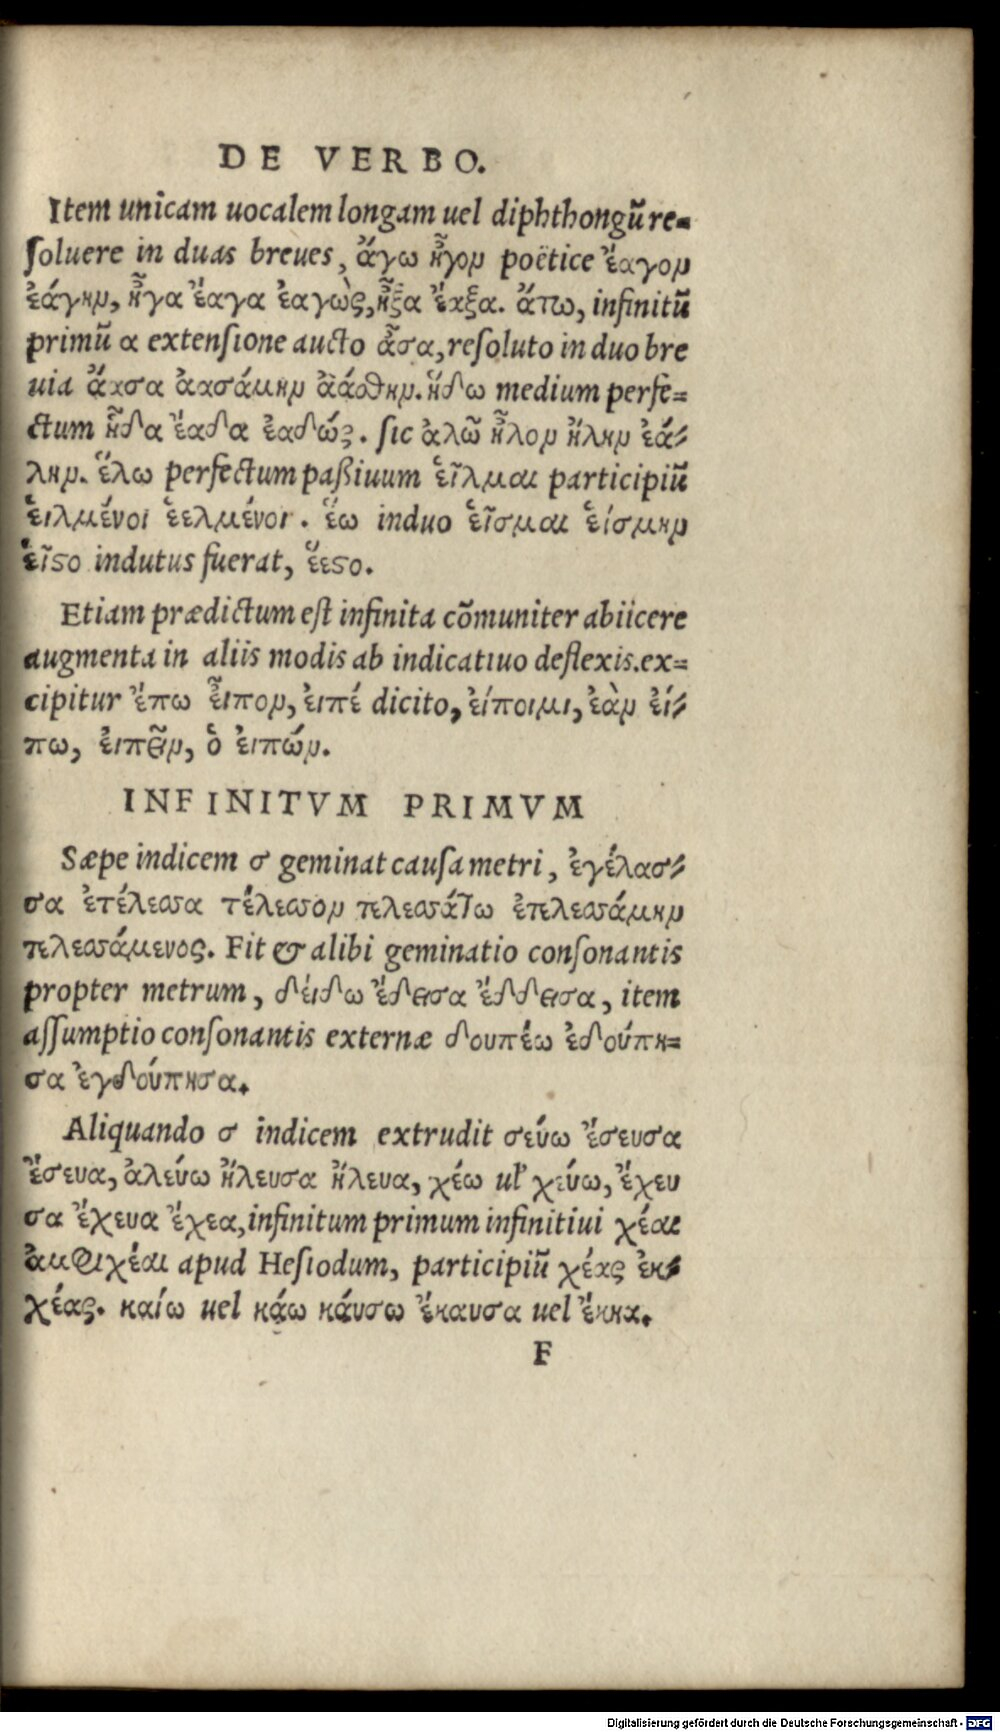 DE VERBO.
Item unicam uocalem longam uel diphthongũ re=
soluere in duas breues, ἄγω ἦγον poëtice ἔαγον
ἐάγην, ἦγα ἔαγα ἐαγὼς, ἦξα ἔαξα. ἄτω, infinitũ
primũ α extensione aucto ἆσα, resoluto in duo bre
uia ἄασα ἀασάμην ἀάσθην. ἥδω medium perfe=
ctum ἧδα ἕαδα ἑαδώς. sic ἁλῶ ἧλον ἥλην ἑά=
λην. ἕλω perfectum paßiuum εἷλμαι participiũ
εἱλμένοι ἐελμένοι. ἕω induo εἷσμαι εἵσμην
εἷστο indutus fuerat, ἕεστο.
Etiam prædictum est infinita cõmuniter abiicere
augmenta in aliis modis ab indicatiuo deflexis. ex=
cipitur ἔπω εἶπον, εἰπέ dicito, εἴποιμι, ἐὰν εἴ=
πω, εἰπεῖν, ὁ εἰπών.
INFINITVM PRIMVM
Sæpe indicem σ geminat causa metri, ἐγέλασ=
σα ἐτέλεσσα τέλεσσον τελεσσάτω ἐτελεσσάμην
τελεσσάμενος. Fit & alibi geminatio consonantis
propter metrum, δείδω ἔδεισα ἔδδεισα, item
assumptio consonantis externæ δουπέω ἐδούπη=
σα ἐγδούπησα.
Aliquando σ indicem extrudit σεύω ἔσευσα
ἔσευα, ἀλεύω ἤλευσα ἤλευα, χέω ul' χεύω, ἔχευ
σα ἔχευα ἔχεα, infinitum primum infinitiui χέαι
ἀμφιχέαι apud Hesiodum, participiũ χέας ἐκ=
χέας. καίω uel κάω κάυσω ἔκαυσα uel ἔκηα.
F
Digitalisierung gefördert durch die Deutsche Forschungsgemeinschaft - DFG